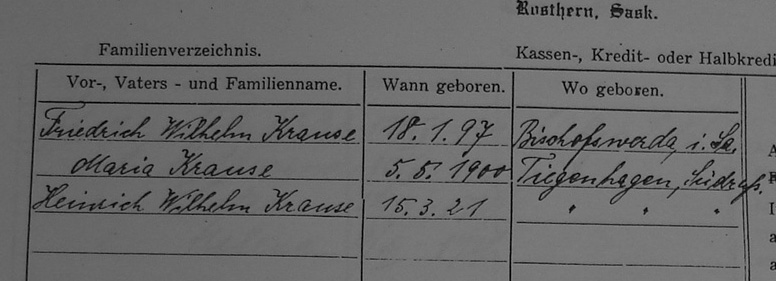 Rosthern, Sask.
Familienverzeichnis. Kassen-, Kredit- oder Halbkredi
Vor-, Vaters - und Familienname. Wann geboren. Wo geboren.
Friedrich Wilhelm Krause 18. 1. 97 Bischofswerda, i. Sa.
Maria Krause 5. 5. 1900 Tiegenhagen, Südruß.
Heinrich Wilhelm Krause 15. 3. 21 " " "